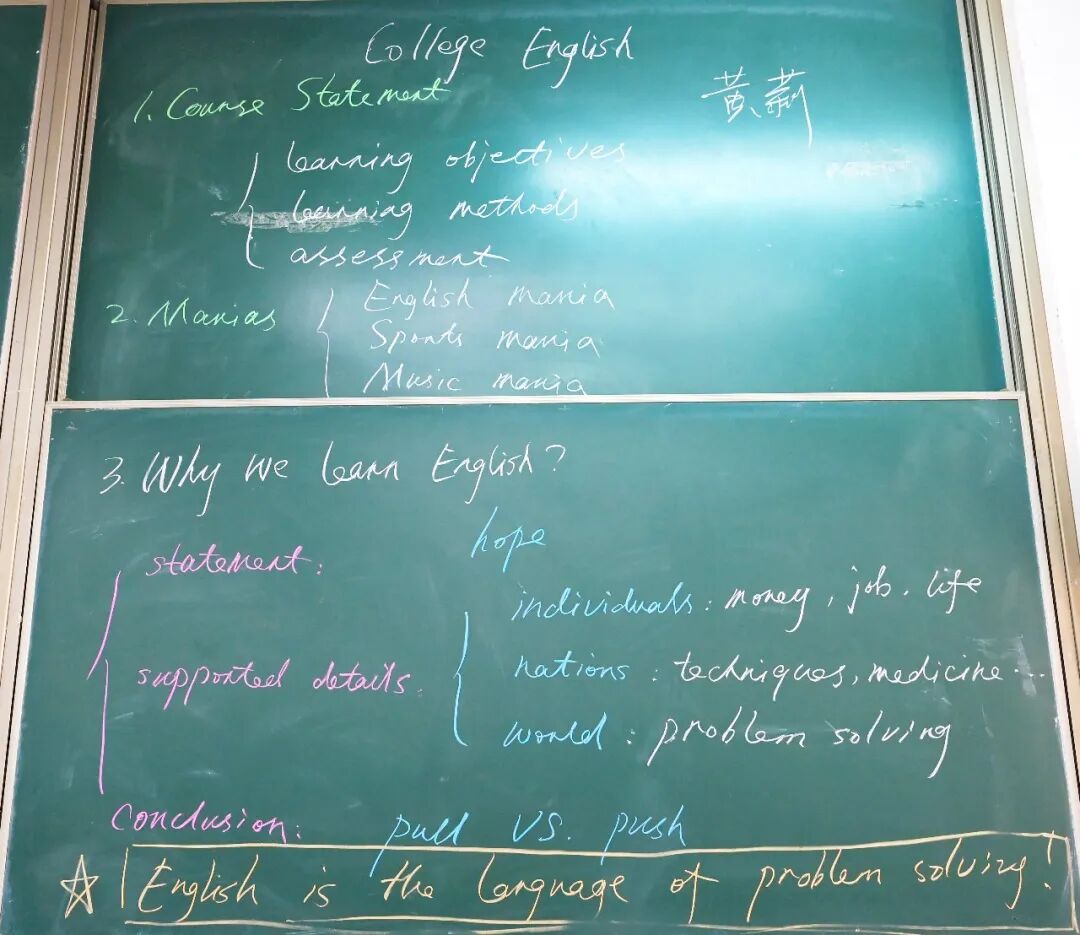 College English
黄莉
1. Course Statement
learning objectives
learning methods
assessment
2. Manias
English mania
Sports mania
Music mania
3. Why we learn English?
statement:
hope
supported details:
individuals: money, job. life
nations: techniques, medicine...
world: problem solving
conclusion: pull VS. push
☆ English is the language of problem solving!